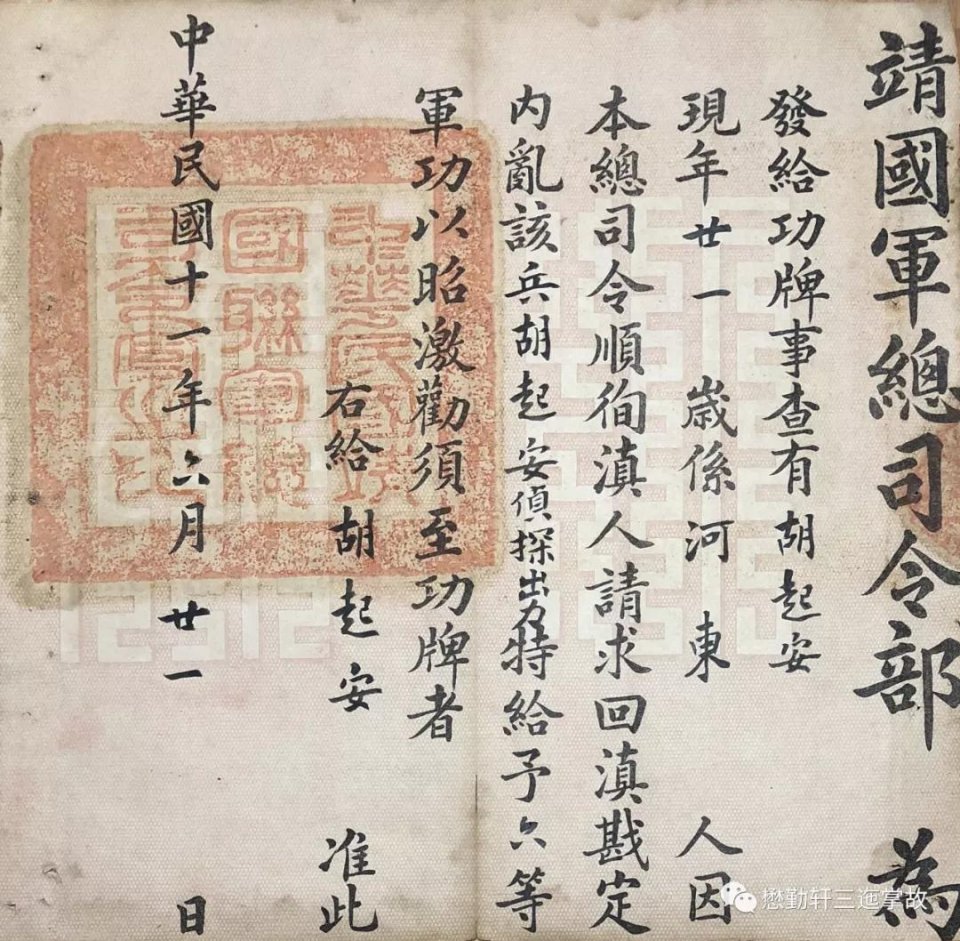 靖國軍總司令部 為
發給功牌事查有胡起安
現年廿一歲係河東 人因
本總司令順徇滇人請求回滇戡定
內亂該兵胡起安偵探出力特給予六等
軍功以昭激勸須至功牌者
右給胡起安 准此
中華民國十一年六月廿一 日
懋勤轩三迤掌故